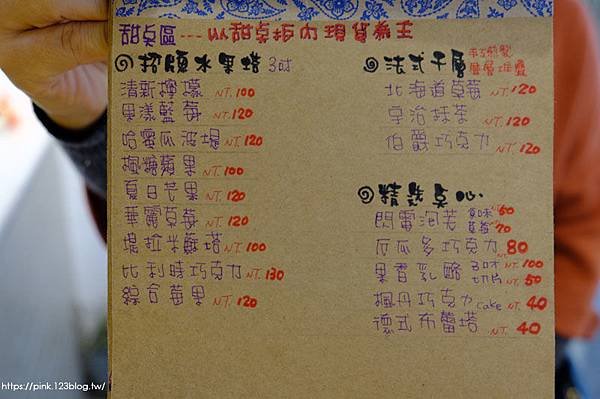 甜点區---以甜点柜内現貨為主
招牌水果塔 3吋
清新檸檬 NT.100
果漾藍莓 NT.120
哈蜜瓜波堤 NT.120
楓糖蘋果 NT.100
夏日芒果 NT.120
華麗草莓 NT.120
堤拉米蘇塔 NT.100
比利時巧克力 NT.130
綜合莓果 NT.120
法式千層 手工煎製 層層堆疊
北海道草莓 NT.120
宇治抹茶 NT.120
伯爵巧克力 NT.120
精選点心
閃電泡芙 原味 NT.60
草莓 NT.70
厄瓜多巧克力 NT.80
果香乳酪 3吋 NT.100
切片 NT.50
楓丹巧克力 cake NT.40
德式布蕾塔 NT.40
https://pink.123blog.tw/